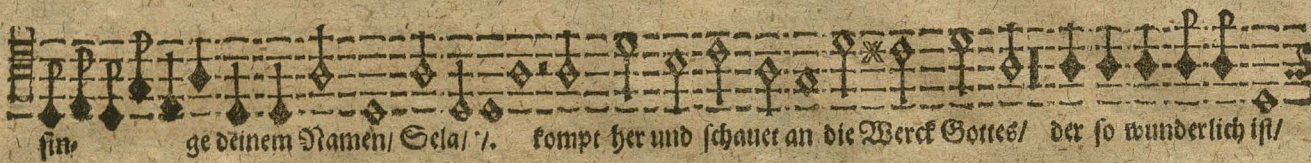 sin- ge deinem Namen/ Sela/ /. kompt her und schauet an die Werck Gottes/ der so wunderlich ist/